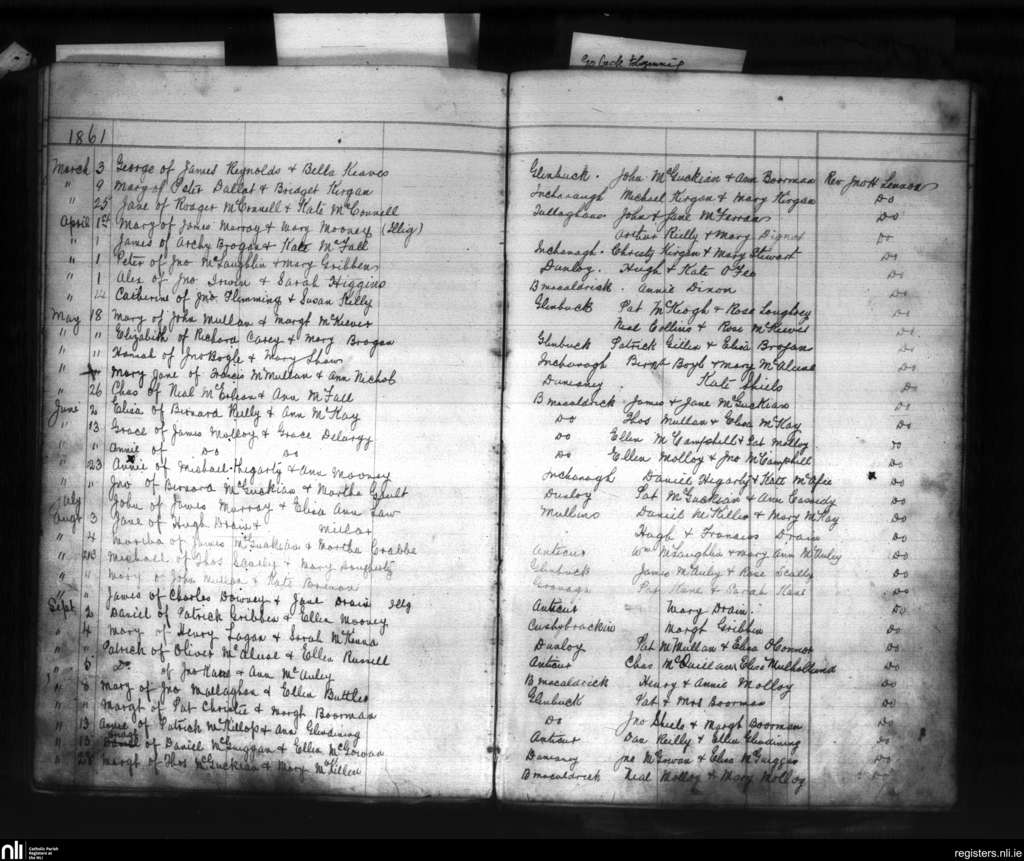 Go back to
1861
March 3 George of James Reynolds & Bella Reaves Glenbuck. John McGuckian & Ann Boorman Rev Jno H Lennon
" 9 Mary of Peter Dallat & Bridget Kirgan Inchanaugh Michael Kirgan & Mary Kirgan Do
" 25 Jane of Roager McConnell & Kate McConnell Tullaghans John & Jane McFarran Do
April 1st Mary of James Murray & Mary Mooney (Illig) Arthur Reilly & Mary Do
" 1 James of Archy Brogan & Kate McFall Inchanagh. Christy Kirgan & Mary Stewart Do
" 1 Peter of Jno McLaughlin & Mary Gribben Dunloy. Hugh & Kate O'Fee Do
" 1 Alex of Jno Irwin & Sarah Higgins Bmacaldrick. Annie Dixon Do
" 4 Catherine of Jno. Flemming & Susan Kelly Glenbuck Pat McKeogh & Rose Loughrey Do
May 18 Mary of John Mullan & Margt McKeever Neal Collins & Rose McKeever Do
" " Elizabeth of Richard Casey & Mary Brogan Glenbuck Patrick Gillen & Eliza Brogan Do
" " Hanah of Jno Bogle & Mary Shaw Inchanagh Boyle & Mary Do
" Mary Jane of Francis McMullan & Ann Nichol Duneaney Kate Shiels Do
" 26 Chas of Neal McErlean & Ann McFall Bmacaldrick James & Jane McGuckian Do
June 2 Eliza of Bernard Reilly & Ann McKay Do Thos Mullan & Eliza McKay Do
" 13 Grace of James Molloy & Grace Delargy Do Ellen McCamphill & Pat Molloy Do
" " Annie of Do Do Do Ellen Molloy & Jno McCamphill Do
" 23 Annie of Michael Hegarty & Ann Mooney Inchanagh Daniel Hegarty & Kate McAfee Do
" " Jno of Bernard McGuckian & Martha Gault Dunloy Pat McGuckian & Ann Cassidy Do
July John of James Murray & Eliza Ann Law Mullins Daniel McKillis & Mary McKay Do
Augt 3 Jane of Hugh Drain & Millar Hugh & Francis Drain Do
" 4 Martha of James McGuckian & Martha Crabbe Anticur Wm McLaughlin & Mary Ann McAuley Do
" Michael of Thos Scally & Mary Dougherty Glenbuck James McAuley & Rose Scally Do
" " Mary of John Mullan & Kate Pat Kane & Sarah Kane Do
" " James of Charles Downey & Jane Drain Illg Anticur Mary Drain. Do
Sept 2 Daniel of Patrick Gribben & Ellen Mooney Cushybrackin Margt Gribbin Do
" 4 Mary of Henry Logan & Sarah McKenna Dunloy Pat McMullan & Eliza O'Connor Do
" " Patrick of Oliver & Ellen Russell Anticur Chas McQuillan & Eliza Mulholland Do
" 5 Do of Jno Kane & Ann McAuley Bmacaldrick Henry & Annie Molloy Do
" 8 Mary of Jno Mallaghan & Ellen Buttler Glenbuck Pat & Mrs Boorman Do
" " Margt of Pat Christie & Margt Boorman Do Jno Shiels & Margt Boorman Do
" 13 Annie of Patrick McKillop & Ann Glendining Anticur Dan Reilly & Ellen Glendining Do
" 15 of Daniel McGuggan & Ellen McGowan Duneaney Jno McGowan & Eliza McGuiggan Do
" 28 Margt of Thos McGuckian & Mary McKillen Bmacaldrick Neal Molloy & Mary Molloy
nli Catholic Parish Registers at the NLI
registers.nli.ie